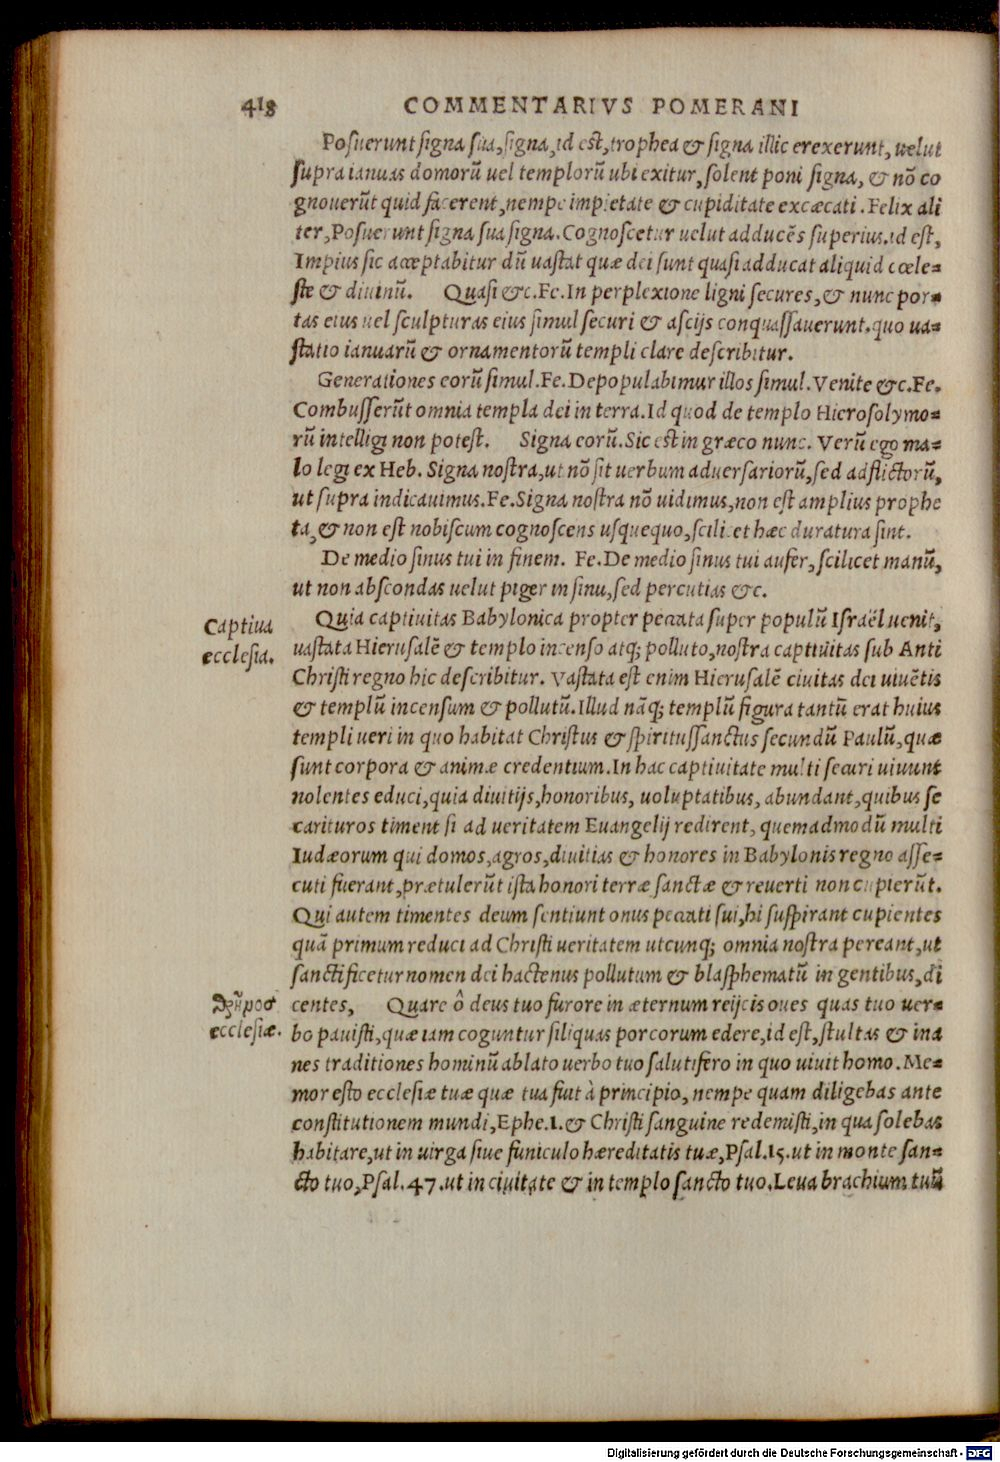 418 COMMENTARIVS POMERANI
Posuerunt signa sua, signa, id est, trophea & signa illic erexerunt, uelut
supra ianuas domorũ uel templorũ ubi exitur, solent poni signa, & nõ co
gnouerũt quid facerent, nempe impietate & cupiditate excæcati. Felix ali
ter, Posuerunt signa sua signa. Cognoscetur uelut adducẽs superius. id est,
Impius sic acceptabitur dũ uastat quæ dei sunt quasi adducat aliquid cœle-
ste & diuinũ. Quasi &c. Fe. In perplexione ligni secures, & nunc por-
tas eius uel sculpturas eius simul securi & ascijs conquassauerunt. quo ua-
statio ianuarũ & ornamentorũ templi clare describitur.
Generationes eorũ simul. Fe. Depopulabimur illos simul. Venite &c. Fe.
Combusserũt omnia templa dei in terra. Id quod de templo Hierosolymo-
rũ intelligi non potest. Signa eorũ. Sic est in græco nunc. Verũ ego ma-
lo legi ex Heb. Signa nostra, ut nõ sit uerbum aduersariorũ, sed adflictorũ,
ut supra indicauimus. Fe. Signa nostra nõ uidimus, non est amplius prophe
ta, & non est nobiscum cognoscens usquequo, scilicet hæc duratura sint.
De medio sinus tui in finem. Fe. De medio sinus tui aufer, scilicet manũ,
ut non abscondas uelut piger in sinu, sed percutias &c.
Captiua
ecclesia.
Quia captiuitas Babylonica propter peccata super populũ Israël uenit,
uastata Hierusalẽ & templo incenso atq; polluto, nostra captiuitas sub Anti
Christi regno hic describitur. Vastata est enim Hierusalẽ ciuitas dei uiuẽtis
& templũ incensum & pollutũ. Illud nãq; templũ figura tantũ erat huius
templi ueri in quo habitat Christus & spiritussanctus secundũ Paulũ, quæ
sunt corpora & animæ credentium. In hac captiuitate multi securi uiuunt
nolentes educi, quia diuitijs, honoribus, uoluptatibus, abundant, quibus se
carituros timent si ad ueritatem Euangelij redirent, quemadmodũ multi
Iudæorum qui domos, agros, diuitias & honores in Babylonis regno asse-
cuti fuerant, prætulerũt ista honori terræ sanctæ & reuerti non cupierũt.
Qui autem timentes deum sentiunt onus peccati sui, hi suspirant cupientes
quã primum reduci ad Christi ueritatem utcunq; omnia nostra pereant, ut
sanctificetur nomen dei hactenus pollutum & blasphematũ in gentibus, di
ecclesiæ.
centes, Quare ô deus tuo furore in æternum reijcis oues quas tuo uer-
bo pauisti, quæ iam coguntur siliquas porcorum edere, id est, stultas & ina
nes traditiones hominũ ablato uerbo tuo salutifero in quo uiuit homo. Me-
mor esto ecclesiæ tuæ quæ tua fuit à principio, nempe quam diligebas ante
constitutionem mundi, Ephe. 1. & Christi sanguine redemisti, in qua solebas
habitare, ut in uirga siue funiculo hæreditatis tuæ, Psal. 15. ut in monte san-
cto tuo, Psal. 47. ut in ciuitate & in templo sancto tuo. Leua brachium tuũ
Digitalisierung gefördert durch die Deutsche Forschungsgemeinschaft - DFG